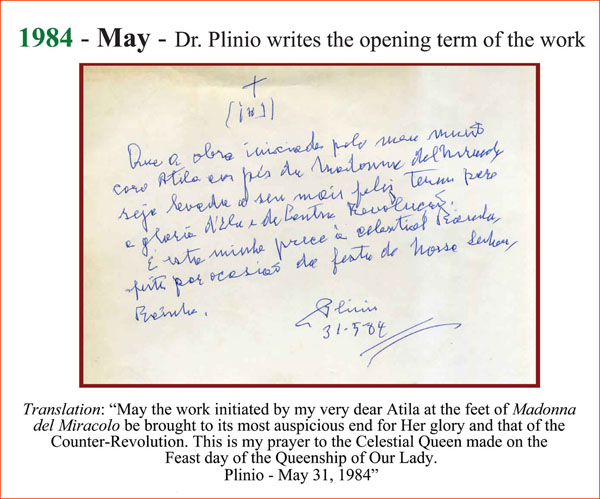 1984 - May - Dr. Plinio writes the opening term of the work
Que a obra iniciada pelo meu muito
caro Atila aos pés da Madonna del Miracolo
seja levada a seu mais feliz termo para
a gloria d'Ela e da Contra Revolução.
É esta minha prece à celestial Rainha,
feita por ocasião da festa de Nossa Senhora
Rainha.
Plinio
31-5-84
Translation: “May the work initiated by my very dear Atila at the feet of Madonna
del Miracolo be brought to its most auspicious end for Her glory and that of the
Counter-Revolution. This is my prayer to the Celestial Queen made on the
Feast day of the Queenship of Our Lady.
Plinio - May 31, 1984”